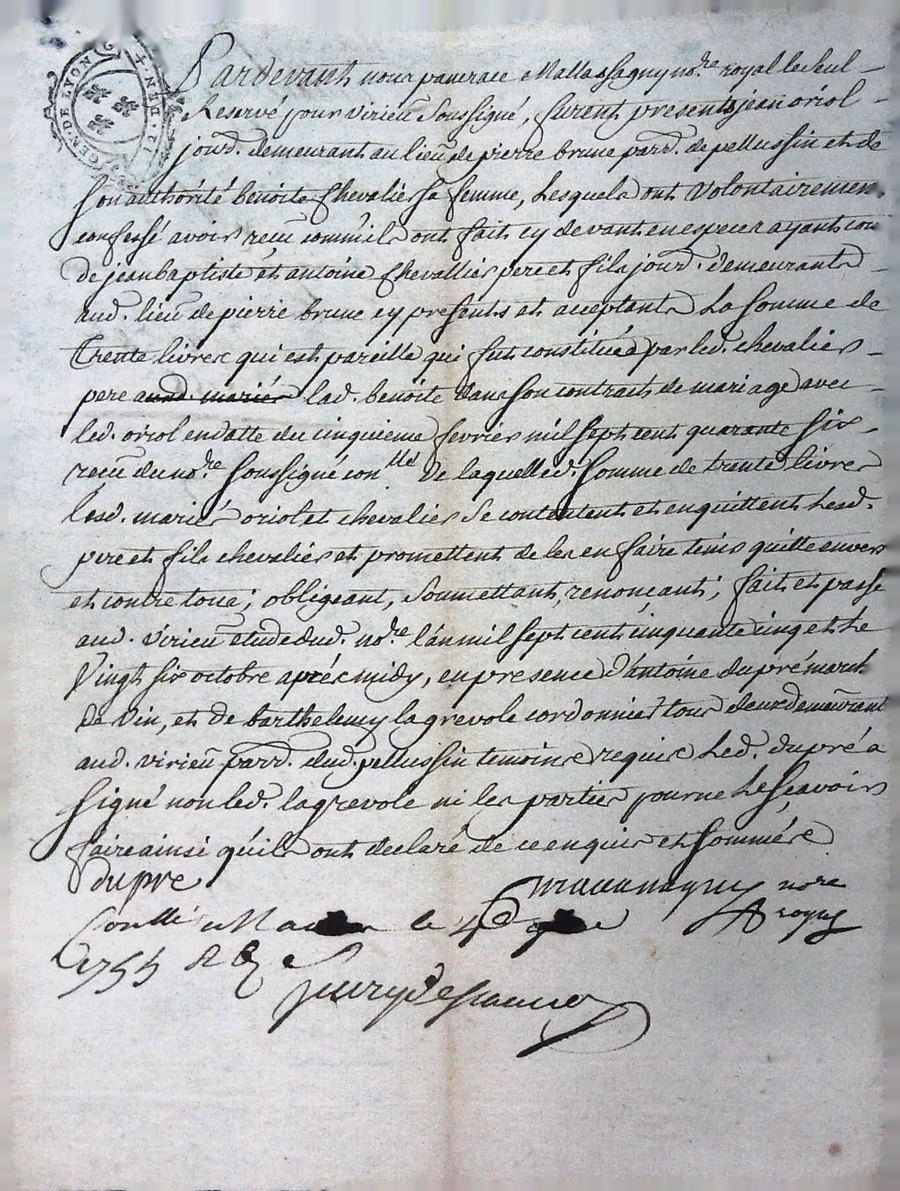 GEN. DE LYON
Pardevant nous pancrace Mallassagny no.re royal le seul
Reservé pour virieu soussigné, furent presents jean oriol
jourd. demeurant au lieu de pierre brune parr. de pellussin et de
son authorité benoite chevalier sa femme, Lesquels ont volontairemen
confessé avoir reçu comm'ils ont fait cy devant en especes ayant cou
de jean baptiste et antoine chevallier pere et fils jourd. demeurants
aud. lieu de pierre brune cy presents et acceptants La somme de
Trente livres qui est pareille qui fut constituée par led. chevalier
pere aud. mariés lad. benoite dans son contract de mariage avec
led. oriol en datte du cinquieme fevrier mil sept cent quarante six
reçu du no.re soussigné con.llé De laquelle d. somme de trente livres
lesd. mariés oriol et chevalier se contentent et en quittent Lesd.
pere et fils chevalier et promettent de les en faire tenir quitte envers
et contre tous; obligeant, soummettant, renonçant; fait et passé
aud. virieu etude dud. no.re l'an mil sept cent cinquante cinq et Le
Vingt six octobre aprés midy, en presence d'antoine dupré march.
De vin, et de barthelemy lagrevole cordonnier tous deux demeurant
aud. virieu parr. dud. pellussin temoins requis Led. dupré a
signé non led. lagrevole ni les parties pour ne Le sçavoir
faire ainsi qu'ils ont declaré de ce enquis et sommés
dupre
nore
royal
Conllé a le 4e
1755